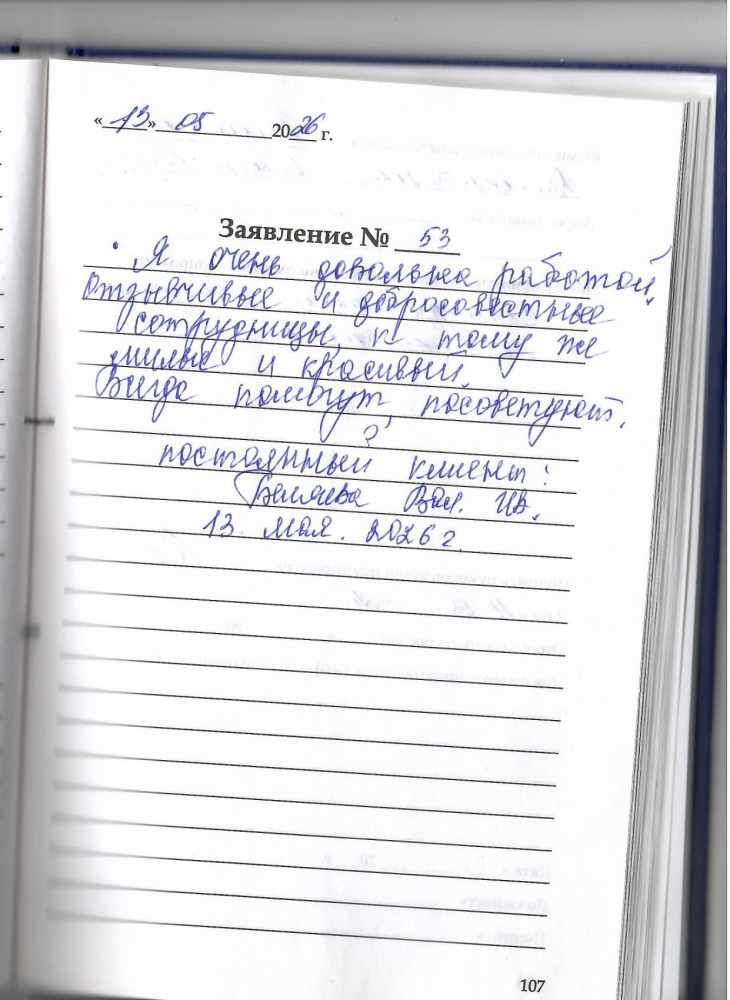 «13» 05 2026 г.
Заявление № 53
Я очень довольна работой.
Отзывчивые и добросовестные
сотрудницы, к тому же
милые и красивый.
Всегда помогут, посоветуют.
постоянный клиент:
Беляева Вал. Ив.
13. мая. 2026 г.
107